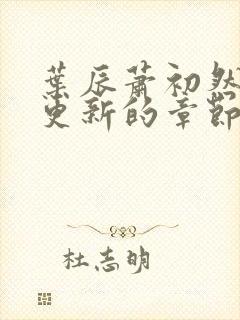 葉辰蕭初然
更新的章節
杜志明